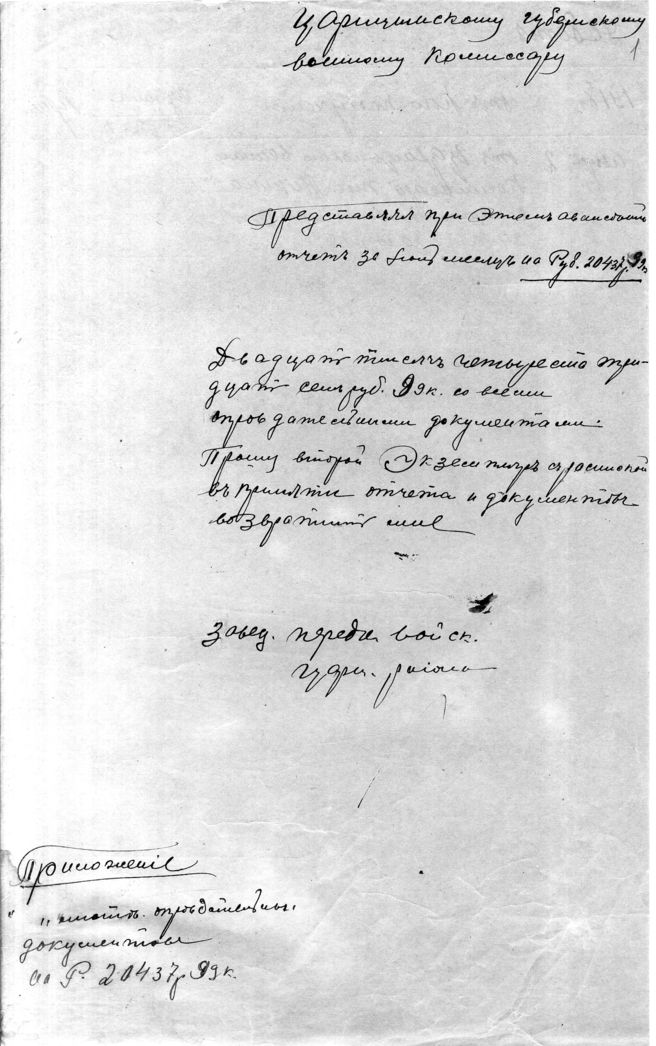 Царицынскому губернскому
военному Комиссару
1
Представляя при этомъ авансовый
отчетъ за месяцъ на Руб. 20437р. 99к.
Двадцать тысячъ четыреста три-
дцать семь руб. 99к. со всеми
оправдательными документами.
Прошу второй Экземпляръ съ роспиской
въ принятии отчета и документовъ
возвратить мне
Завед. передв. войск.
Цариц. района
Приложенiе
оправдательны.
документовъ
на Р. 20437р 99к.